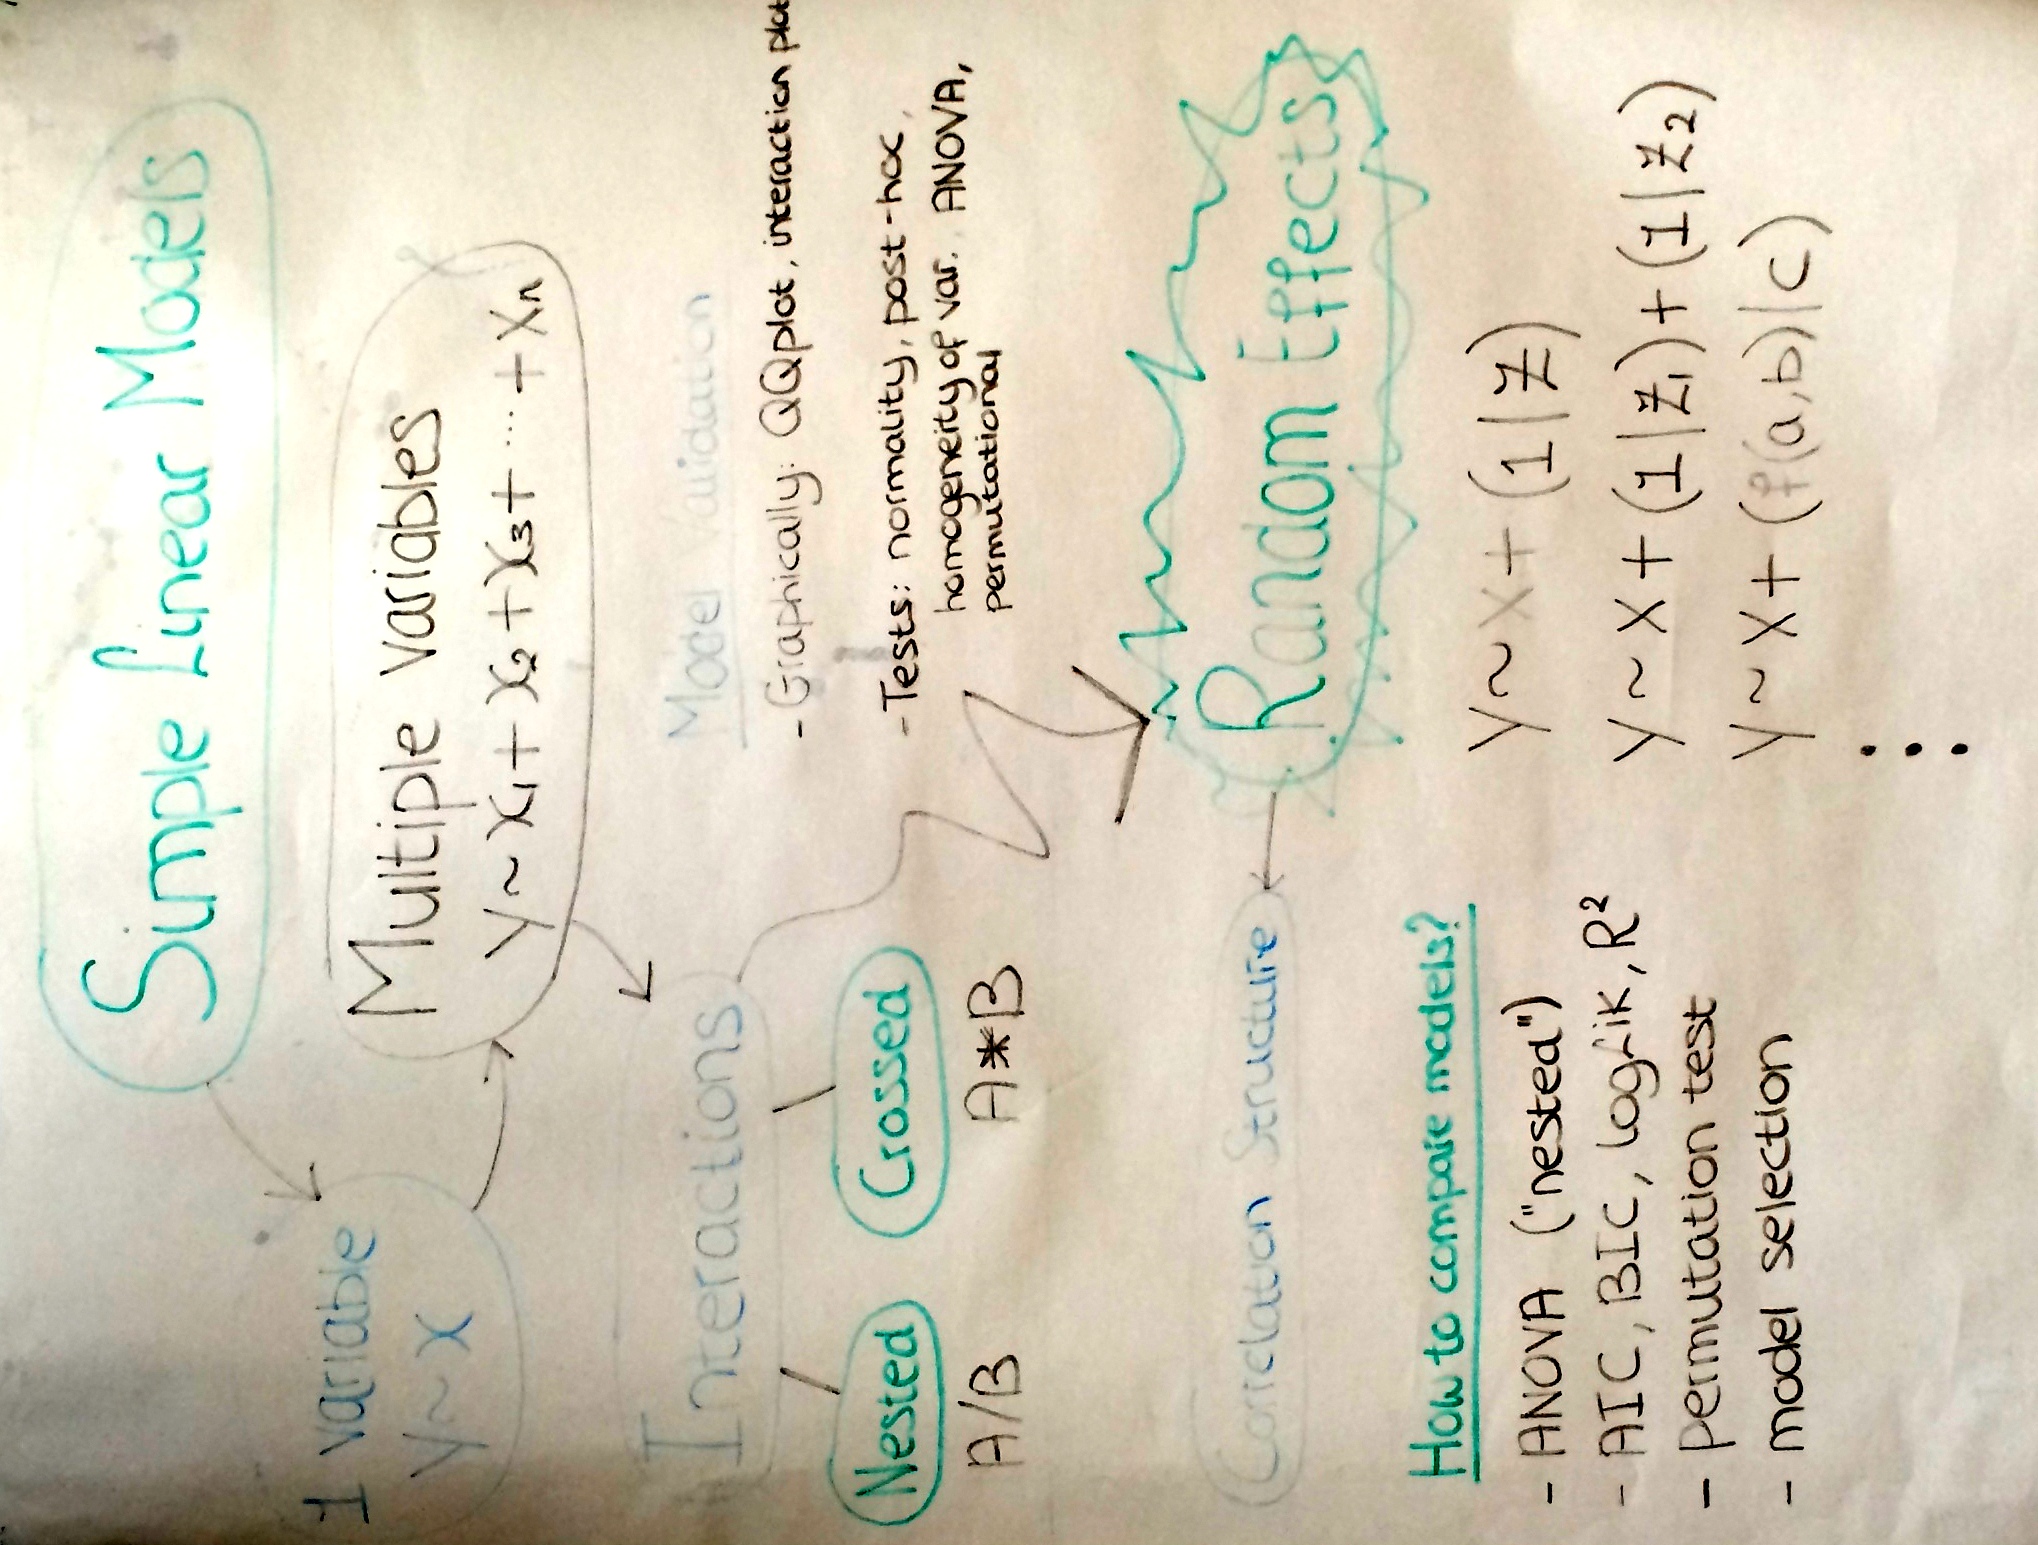 Simple Linear Models
1 variable
y ~ x
Multiple variables
y ~ x₁ + x₂ + x₃ + ... + xₙ
Interactions
Nested
A/B
Crossed
A*B
Model Validation
- Graphically: QQplot, interaction plot
- Tests: normality, post-hoc,
homogeneity of var. ANOVA,
permutational
Random Effects
Correlation Structure
y ~ x + (1|z)
y ~ x + (1|z₁) + (1|z₂)
y ~ x + (f(a,b)|c)
...
How to compare models?
- ANOVA ("nested")
- AIC, BIC, logLik, R²
- permutation test
- model selection